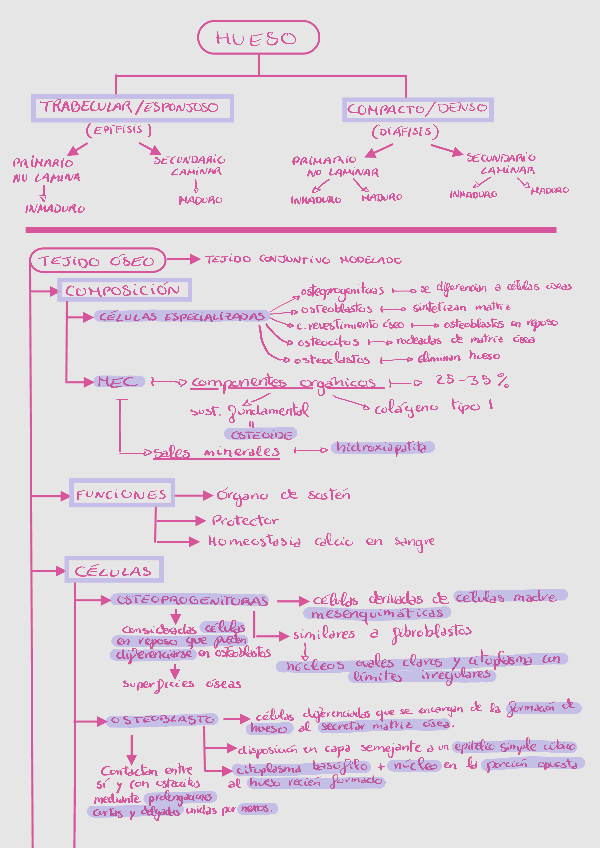 HUESO
TRABECULAR/ESPONJOSO
(EPÍFISIS)
COMPACTO/DENSO
(DIÁFISIS)
PRIMARIO
NO LAMINAR
INMADURO
SECUNDARIO
LAMINAR
MADURO
PRIMARIO
NO LAMINAR
INMADURO
MADURO
SECUNDARIO
LAMINAR
INMADURO
MADURO
TEJIDO ÓSEO → TEJIDO CONJUNTIVO MODELADO
COMPOSICIÓN
CÉLULAS ESPECIALIZADAS
osteoprogenitoras → se diferencian a células óseas
osteoblastos → sintetizan matriz
c. revestimiento óseo → osteoblastos en reposo
osteocitos → rodeados de matriz ósea
osteoclastos → eliminan hueso
MEC → componentes orgánicos → 25-35%
sust. fundamental
colágeno tipo I
OSTEOIDE
sales minerales → hidroxiapatita
FUNCIONES → Órgano de sostén
Protector
Homeostasia calcio en sangre
CÉLULAS
OSTEOPROGENITURAS → células derivadas de células madre
mesenquimáticas
consideradas células
en reposo que pueden
diferenciarse en osteoblastos
superficies óseas
similares a fibroblastos
núcleos ovales claros y citoplasma con
límites irregulares
OSTEOBLASTO → células diferenciadas que se encargan de la formación de
hueso al secretar matriz ósea.
disposición en capa semejante a un epitelio simple cúbico
citoplasma basófilo + núcleo en la porción opuesta
al hueso recién formado
Contactan entre
sí y con osteocitos
mediante prolongaciones
cortas y delgadas unidas por nexos.